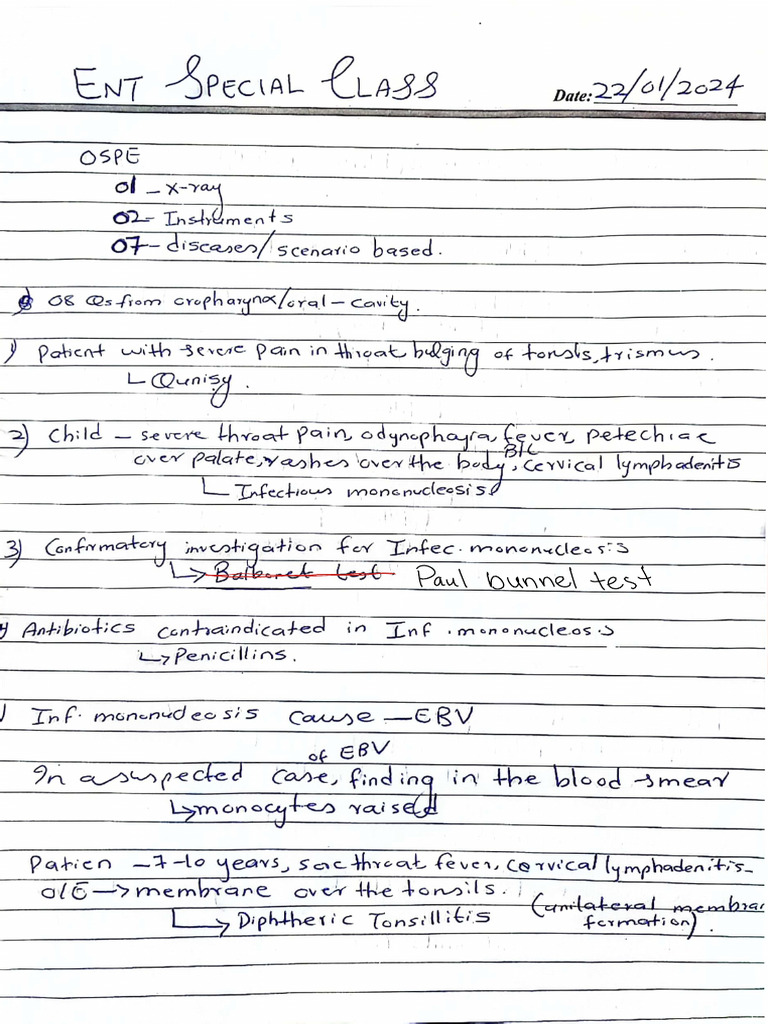 ENT SPECIAL CLASS
Date: 22/01/2024
OSPE
01 - x-ray
02 - Instruments
07 - diseases/scenario based.
08 Qs from oropharynx/oral-cavity.
1) Patient with severe pain in throat bulging of tonsils, trismus.
Qunisy.
2) Child - severe throat pain, odynophagra, fever, petechiae
over palate, rashes over the body, B/L cervical lymphadenitis
Infectious mononucleosis
3) Confirmatory investigation for Infec. mononucleosis
Paul bunnel test
Antibiotics contraindicated in Inf. mononucleosis
Penicillins.
Inf. mononucleosis cause - EBV
In a suspected case of EBV, finding in the blood smear
monocytes raised
Patien - 7-10 years, sore throat fever, cervical lymphadenitis-
O/E → membrane over the tonsils.
Diphtheric Tonsillitis (unilateral membrar
formation).